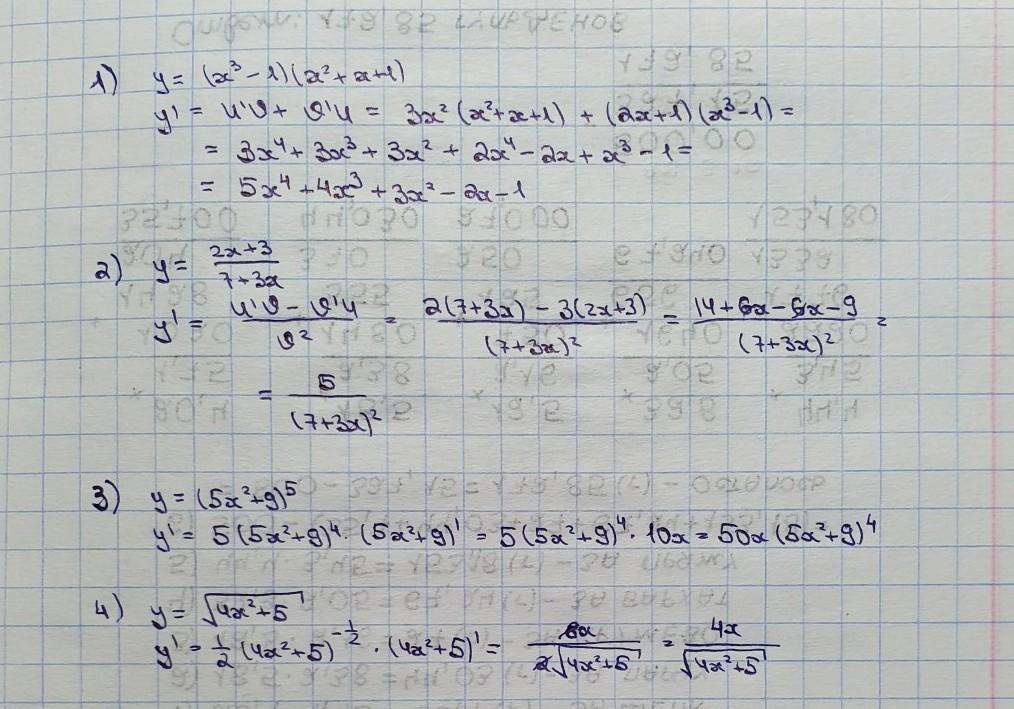 1) y = (x³ - 1)(x² + x + 1)
y' = u'v + v'u = 3x² (x² + x + 1) + (2x + 1)(x³ - 1) =
= 3x⁴ + 3x³ + 3x² + 2x⁴ - 2x + x³ - 1 =
= 5x⁴ + 4x³ + 3x² - 2x - 1
2) y = (2x + 3)/(7 + 3x)
y' = (u'v - v'u)/v² = (2(7 + 3x) - 3(2x + 3))/(7 + 3x)² = (14 + 6x - 6x - 9)/(7 + 3x)² =
= 5/(7 + 3x)²
3) y = (5x² + 9)⁵
y' = 5(5x² + 9)⁴ · (5x² + 9)' = 5(5x² + 9)⁴ · 10x = 50x (5x² + 9)⁴
4) y = √(4x² + 5)
y' = 1/2 (4x² + 5)^(-1/2) · (4x² + 5)' = 8x/(2√(4x² + 5)) = 4x/√(4x² + 5)